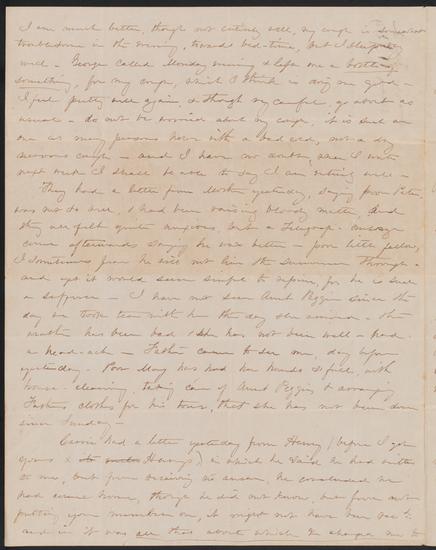 I am much better, though not entirely well, my cough is somewhat
troublesome in the evening, toward bed-time, but I sleep
well - George called Monday evening & left me a bottle of
something, for my cough, which I think is doing me good -
I feel pretty well again, & though very careful, go about as
usual - do not be worried about my cough, it is such an
one as many persons have with a bad cold, not a dry
nervous cough - and I have no doubt, when I write
next week I shall be able to say I am entirely well -
They had a letter from yesterday, saying poor Peter
was not so well, & had been raising bloody matter, and
they all felt quite anxious, but a Telegraph message
came afterwards saying he was better - poor little fellow,
I sometimes fear he will not live the summer through -
and yet it would seem sinful to repine, for he is such
a sufferer - I have not seen Aunt Peggy since the
day we took tea with her the day she arrived - the
weather has been bad & she has not been well - had
a head-ach - Father came to see me, day before
yesterday - Poor Mary has had her hands full, with
house-cleaning, taking care of Aunt Peggy & arranging
Fathers clothes for his tour, that she has not been down
since Sunday -
had a letter yesterday from Henry (before I got
yours & Henrys) in which he said he had written
to me, but from receiving no answer, he concluded he
had come home, though he did not know, but from not
putting your on, it might not have
and in it was all that about which he charged me to